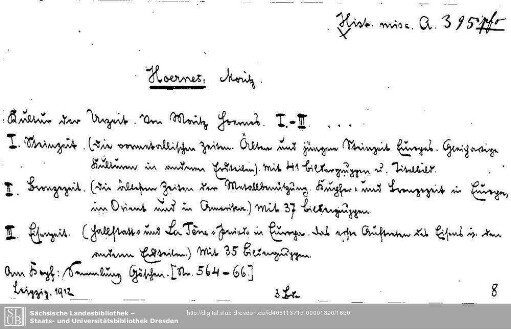 Hist. misc. A. 395
Hoernes, Moritz.
Kultur der Urzeit. Von Moritz Hoernes. I.-III ...
I. Steinzeit. (Die vormetallischen Zeiten. Ältere und jüngere Steinzeit Europas. Gleichartige
Kulturen in anderen Erdteilen). Mit 41 Bildergruppen u. Titelbild.
II. Bronzezeit. (Die ältesten Zeiten der Metallbenützung. Kupfer- und Bronzezeit in Europa,
im Orient und in Amerika.) Mit 37 Bildergruppen.
III. Eisenzeit. (Hallstatt- und La Tène-Periode in Europa. Das erste Auftreten des Eisens in den
anderen Erdteilen.) Mit 35 Bildergruppen.
Am Kopf: Sammlung Göschen. [Nr. 564-66]
Leipzig. 1912
3 Bde
8
SLUB
Sächsische Landesbibliothek –
Staats- und Universitätsbibliothek Dresden